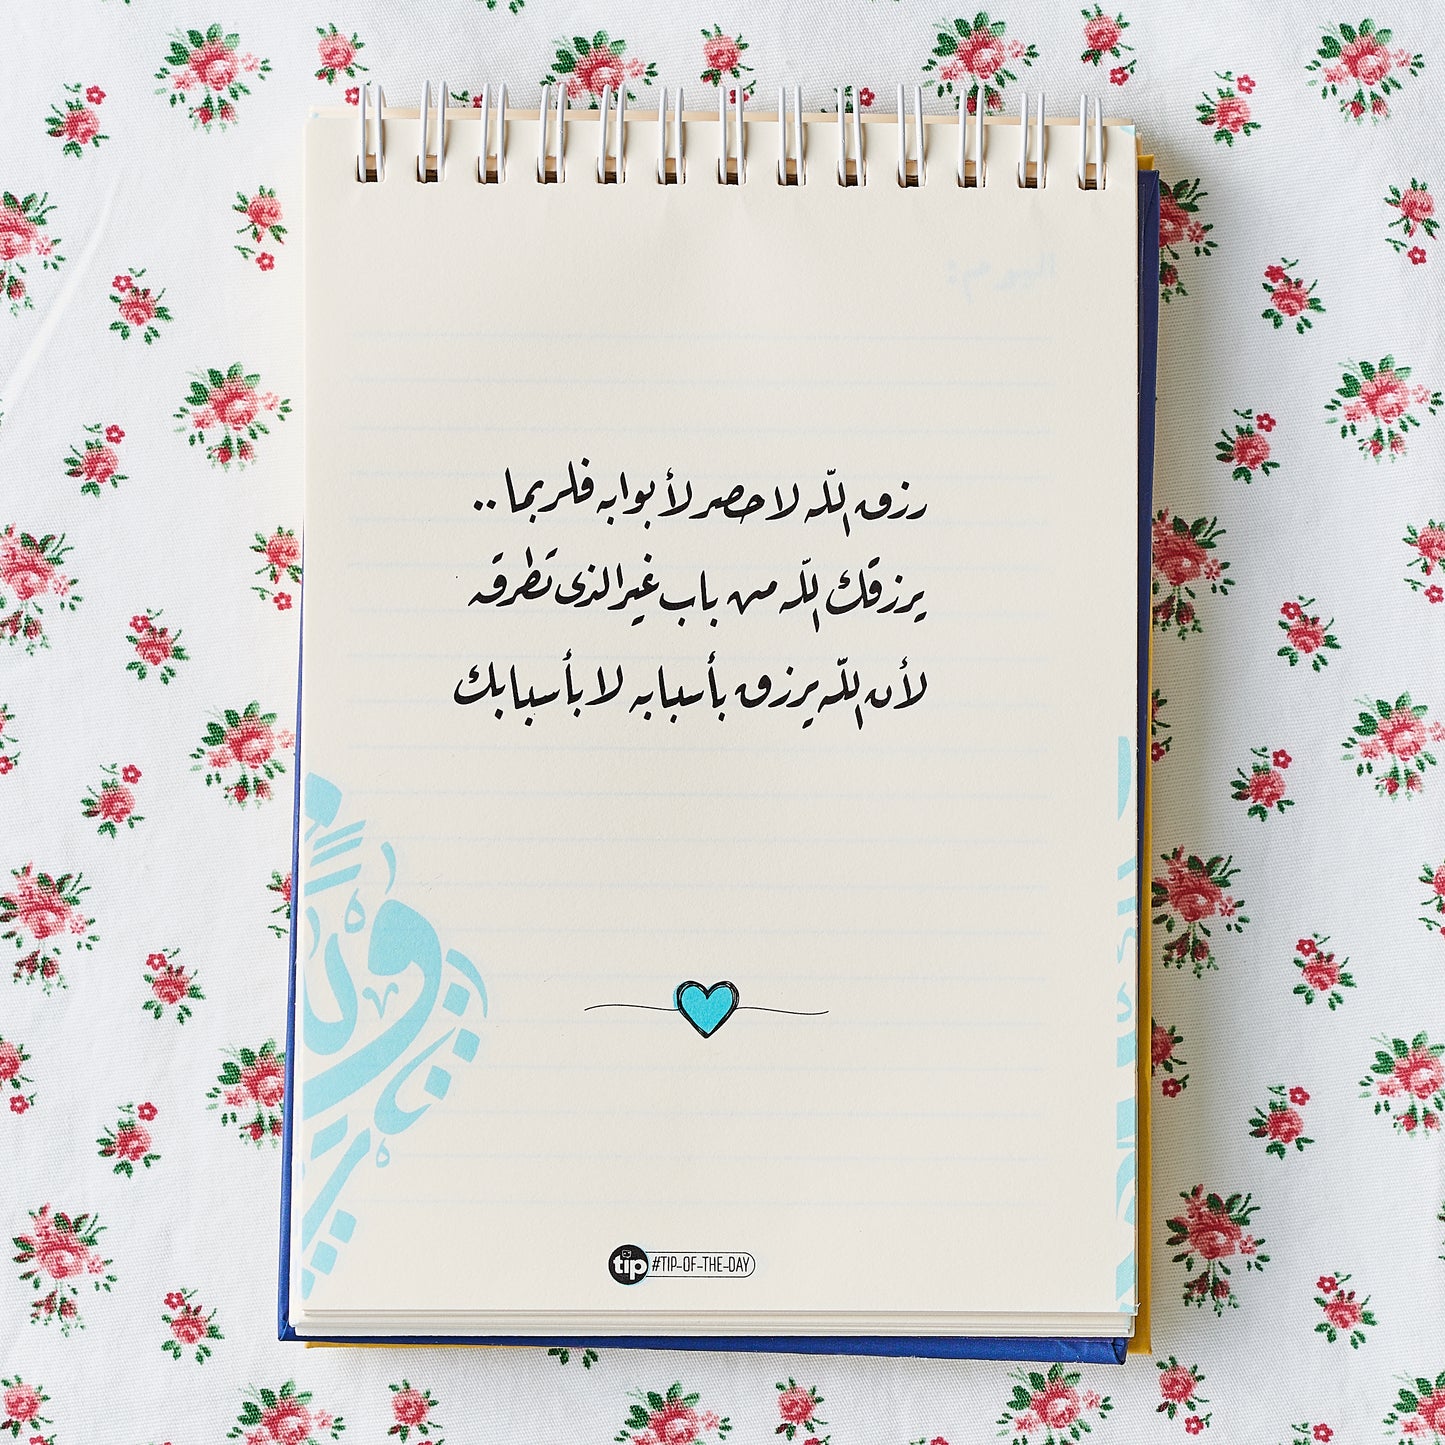 رزق الله لا حصر لأبوابه فلربما ..
يرزقك الله من باب غير الذى تطرقه
لأن الله يرزق بأسبابه لا بأسبابك
tip #TIP-OF-THE-DAY